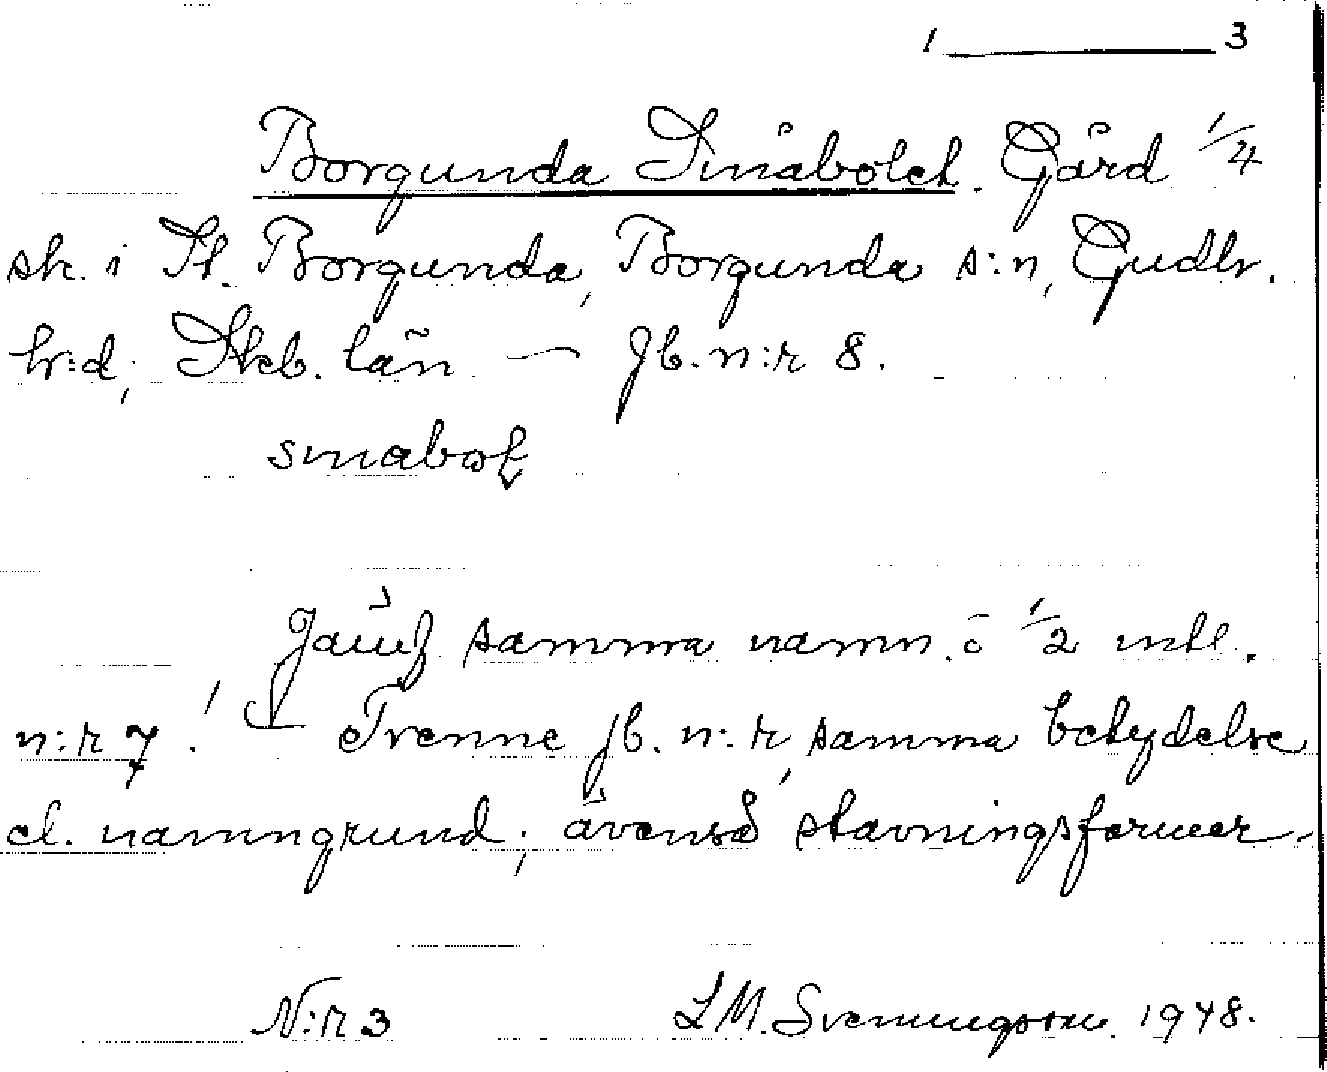 1 ——— 3
Borgunda Småbolet. Gård 1/4
sk. i St. Borgunda, Borgunda s:n, Gudh.
h:d, Skb. län — Jb. n:r 8.
smabol
Jämf samma namn. å 1/2 mtl.
n:r 7. Trenne jb. n:r, samma betydelse
el. namngrund, ävenså stavningsformer.
N:r 3 LM. Svenungsson 1948.